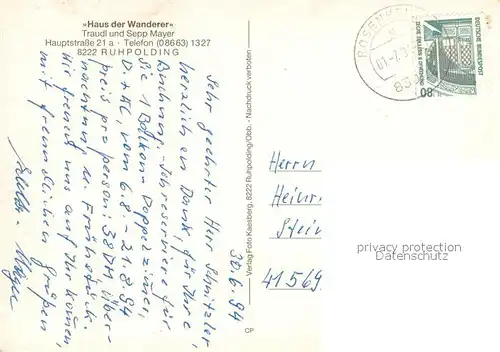 »Haus der Wanderer«
Traudl und Sepp Mayer
Hauptstraße 21 a · Telefon (08663) 1327
8222 RUHPOLDING
30.6.94
Sehr geehrter Herr Schnitzler
herzlichen Dank, für Ihre
Buchung. Ich reserviere für
Sie 1 Balkon-Doppelzimmer,
D + WC, vom 6.8. - 21.8.94
preis pro person: 38 DM, Über-
nachtung u. Frühstück.
Wir freuen uns auf Ihr Kommen,
mit freundlichen Grüßen
Mayer
Verlag Foto Kaesberg, 8222 Ruhpolding/Obb. - Nachdruck verboten
CP
ROSENHEIM
DEUTSCHE BUNDESPOST
ZECHE ZOLLERN II DORTMUND
80
Herrn
Heinr
Stein
41569
privacy protection
Datenschutz